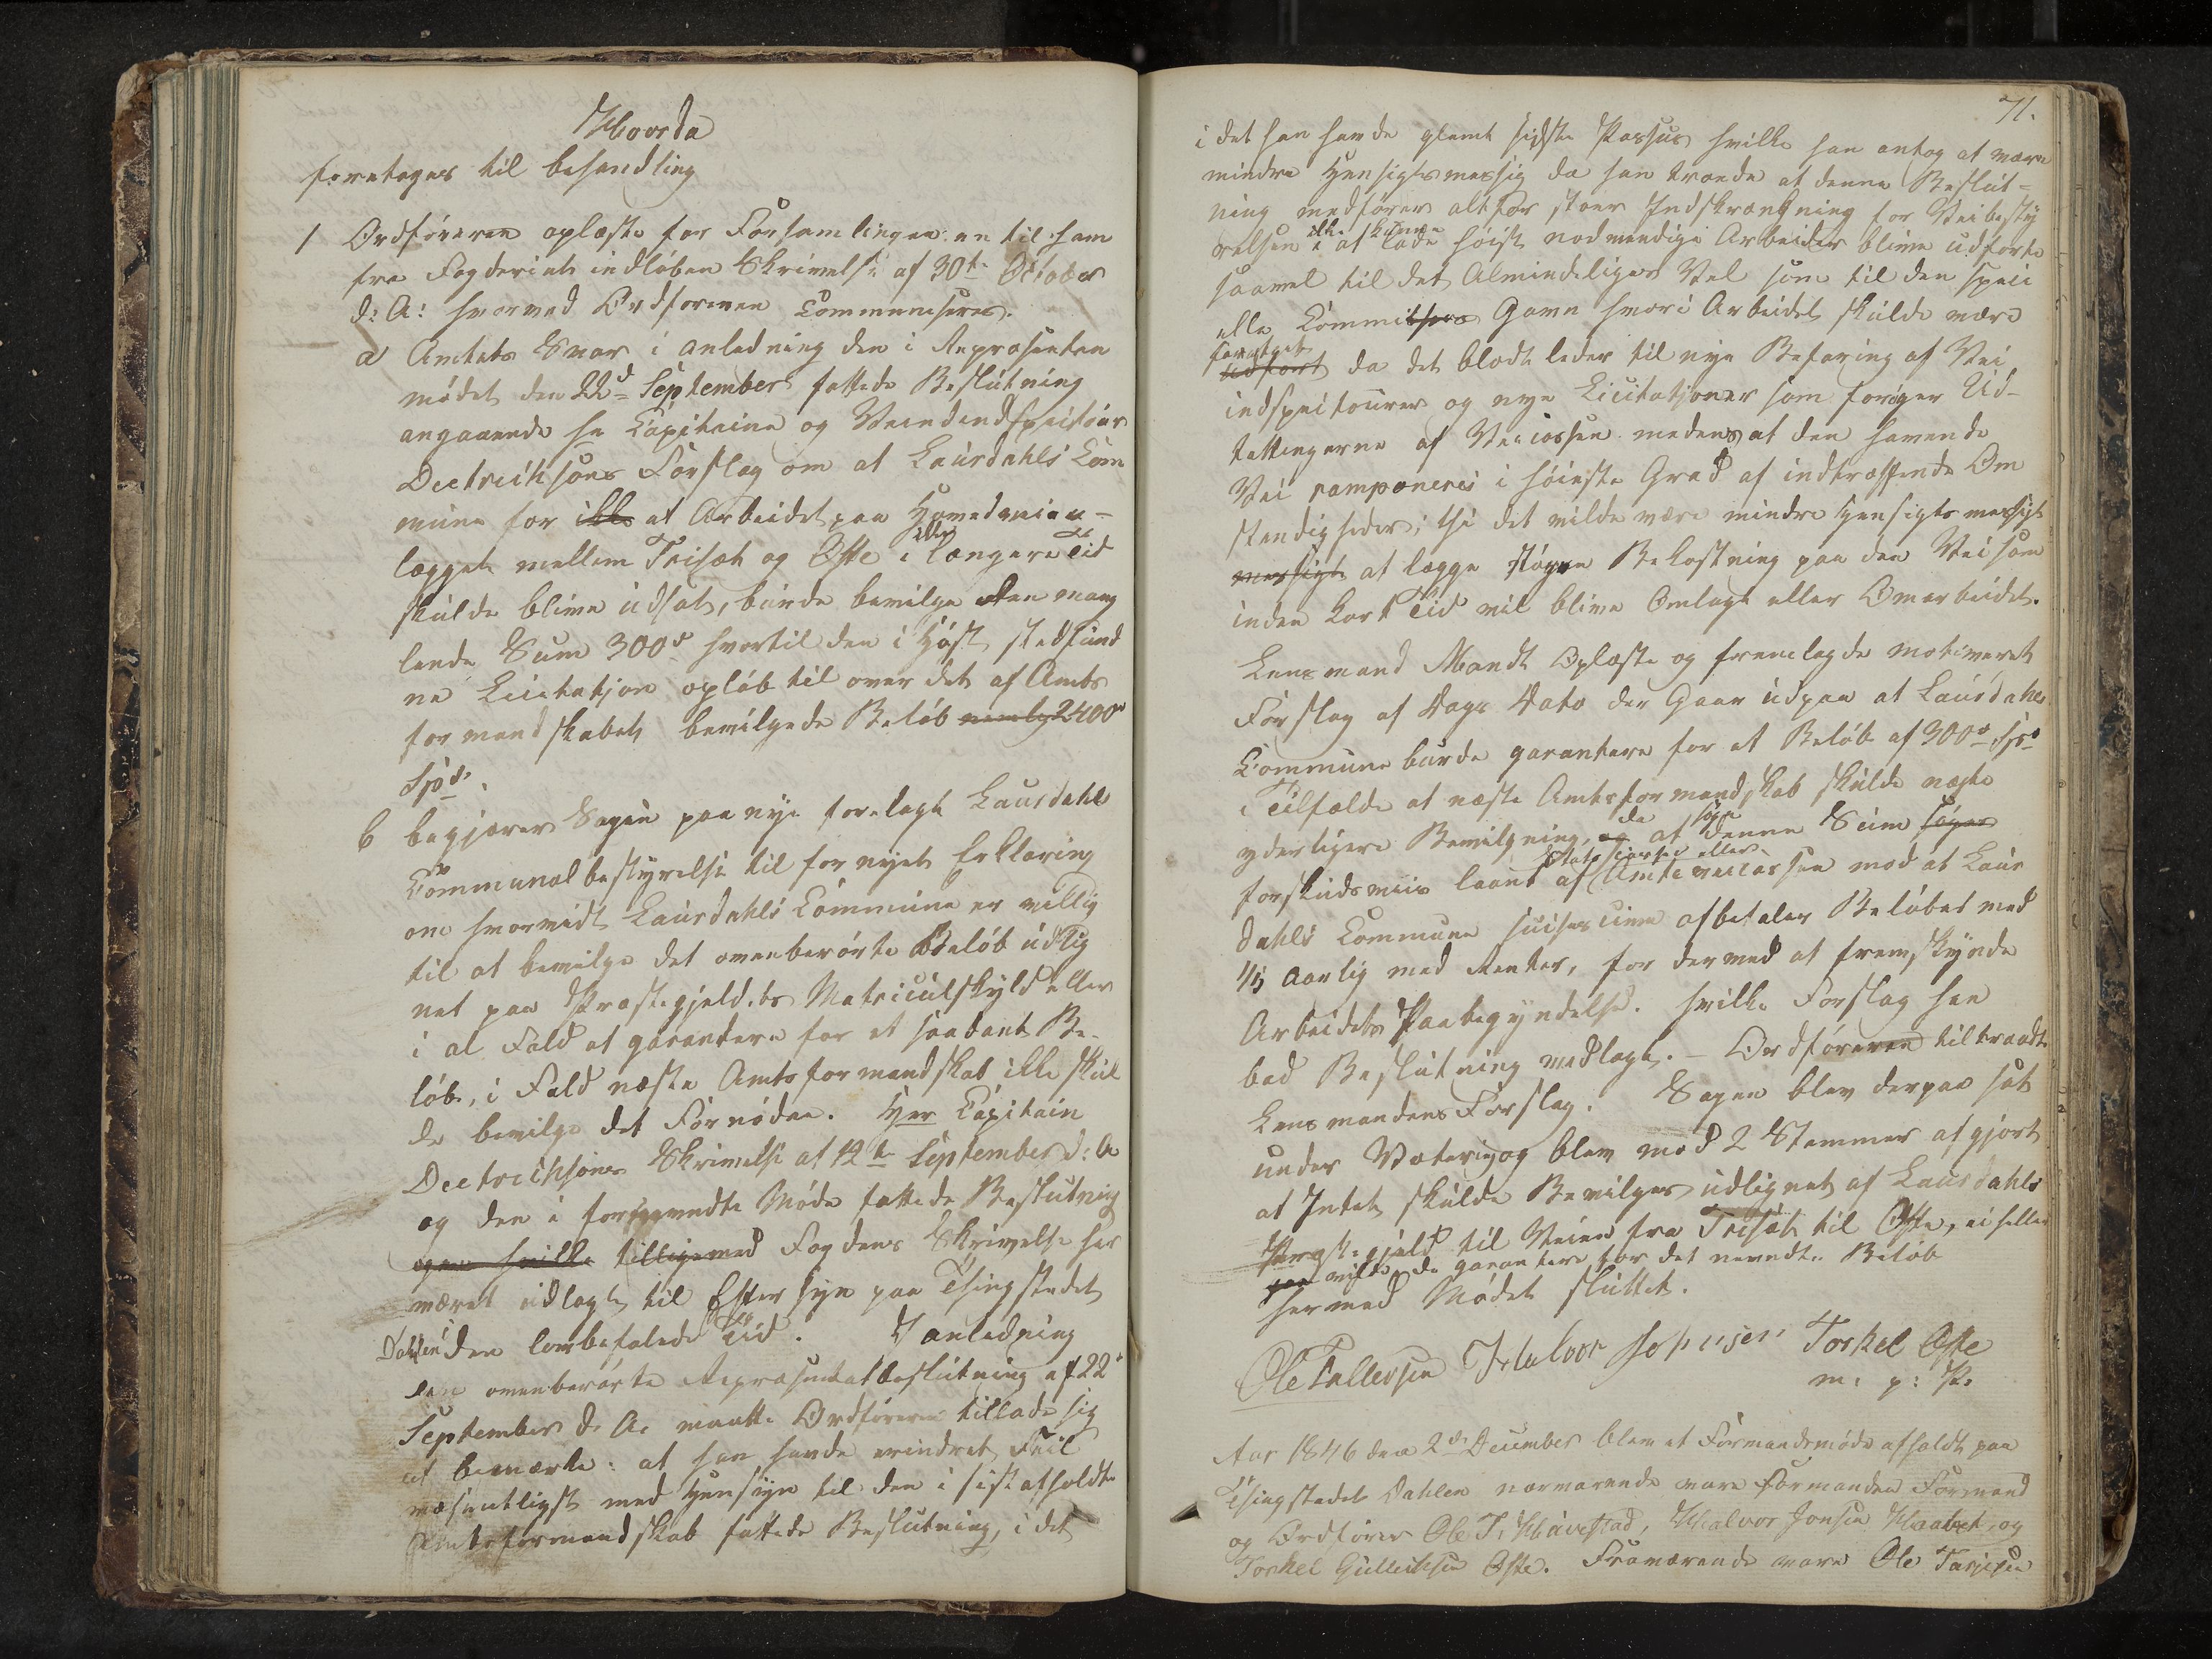 Hvorda
foretages til behandling
1 Ordføreren oplæste for Forsamlingen en til ham
fra Fogderiets indløben Skrivelse af 30te October
d: A: hvorved Ordføreren Communiseres.
a Amtets Svar i anledning den i Repræsentan
mødet den 22d September fattede Beslutning
angaaende Hr Capitaine og Veiindspecteur
Deetrichsons Forslag om at Laurdahls Com
mune for ikke at Arbeidet paa Hovedveian-
lægget mellem Trisæt og Ofte i længere Tid
eller
skulde blive udsat, burde bevilge den mang
lende Sum 300d hvortil den i Høst stedfund
ne Licitatjon opløb til over det af Amts
formandskabet bevilgede Beløb nemlig 2400d
Spd.
b begjærer Sagen paa nye forelagt Laurdahls
Communalbestyrelse til fornyet Erklæring
om hvorvidt Laurdahls Commune er villig
til at bevilge det ovenberørte Beløb udlig
net paa Præstegjeldets Matriculskyld eller
i al Fald at garantere for et saadant Be-
løb, i Fald næste Amtsformandskab ikke skul
de bevilge det Fornødne. Her Capitain
Deetrichsons Skrivelse af 12te September d: A
og den i fornævndte Møde fattede Beslutning
ogsaa hvilke tilligemed Fogdens Skrivelse har
været udlagt til Eftersyn paa Thingstedet
Dahlen i den lovbefalede Tid. I anledning
den ovenberørte Repræsentatbeslutning af 22d
September d. A. maatte Ordføreren tillade sig
at bemærke: at han havde erindret Feil
væsentligst med Hensyn til den i sist afholdte
Amtsformandskab fattede Beslutning, i det
71.
i det han havde glemt sidste Passus hvilke han antog at være
mindre Hensigtsmessig da han troede at denne Beslut-
ning medfører altfor stoer Indskrænkning for Veibesty
relsen i at lade høist nødvendige Arbeider blive udførte
ikke kunne
saavel til det Almindeliges Vel som til den speci
elle Committers Gavn hvori Arbeidet skulde være
foretaget
udført da det blodt leder til nye Befaring af Vei
indspecteurer og nye Licitatjoner som forøger Ud-
tellingerne af Veicassen medens at den havende
Vei ramponeres i høieste Grad af indtræffende Om
stendigheder; thi det vilde være mindre Hensigtsmessigt
messigt at lægge større Bekostning paa den Vei som
inden kort Tid vil blive Omlagt eller Omarbeidet.
Lensmand Mandt Oplæste og fremlagde motiveret
Forslag af Dags Dato der Gaar udpaa at Laurdahls
Commune burde garantere for et Beløb af 300d Spd
i Tilfælde at næste Amtsformandskab skulde negte
yderligere Bevilgning, og at denne Sum søges
da søge
forskudsviis laant af Amtsveicassen mod at Laur
Statscassen eller
dahls Commune successive afbetaler Beløbet med
1/5 aarlig med Renter, for dermed at fremskynde
Arbeidets Paabegyndelse. hvilke Forslag han
bad Beslutning vedlagt. – Ordføreren tiltraadte
Lensmandens Forslag. Sagen blev derpaa sat
under Votering og blev med 2 Stemmer afgjort
at Intet skulde Bevilges udlignet af Laurdahls
Præstegjeld til Veien fra Trisæt til Ofte, ei heller
vilde de garantere for det nævndte Beløb
hermed Mødet sluttet.
Ole Tallevsen Halvor Johnsen Torkel Ofte
m: p: P:
Aar 1846 den 2den December blev et Formandsmøde afholdt paa
Thingstedet Dahlen nærværende vare Formanden Formand
og Ordfører Ole T. Havestad, Halvor Jonsen Haatvet, og
Torkel Gullechsen Ofte. Fraværende vare Ole Tarjesen